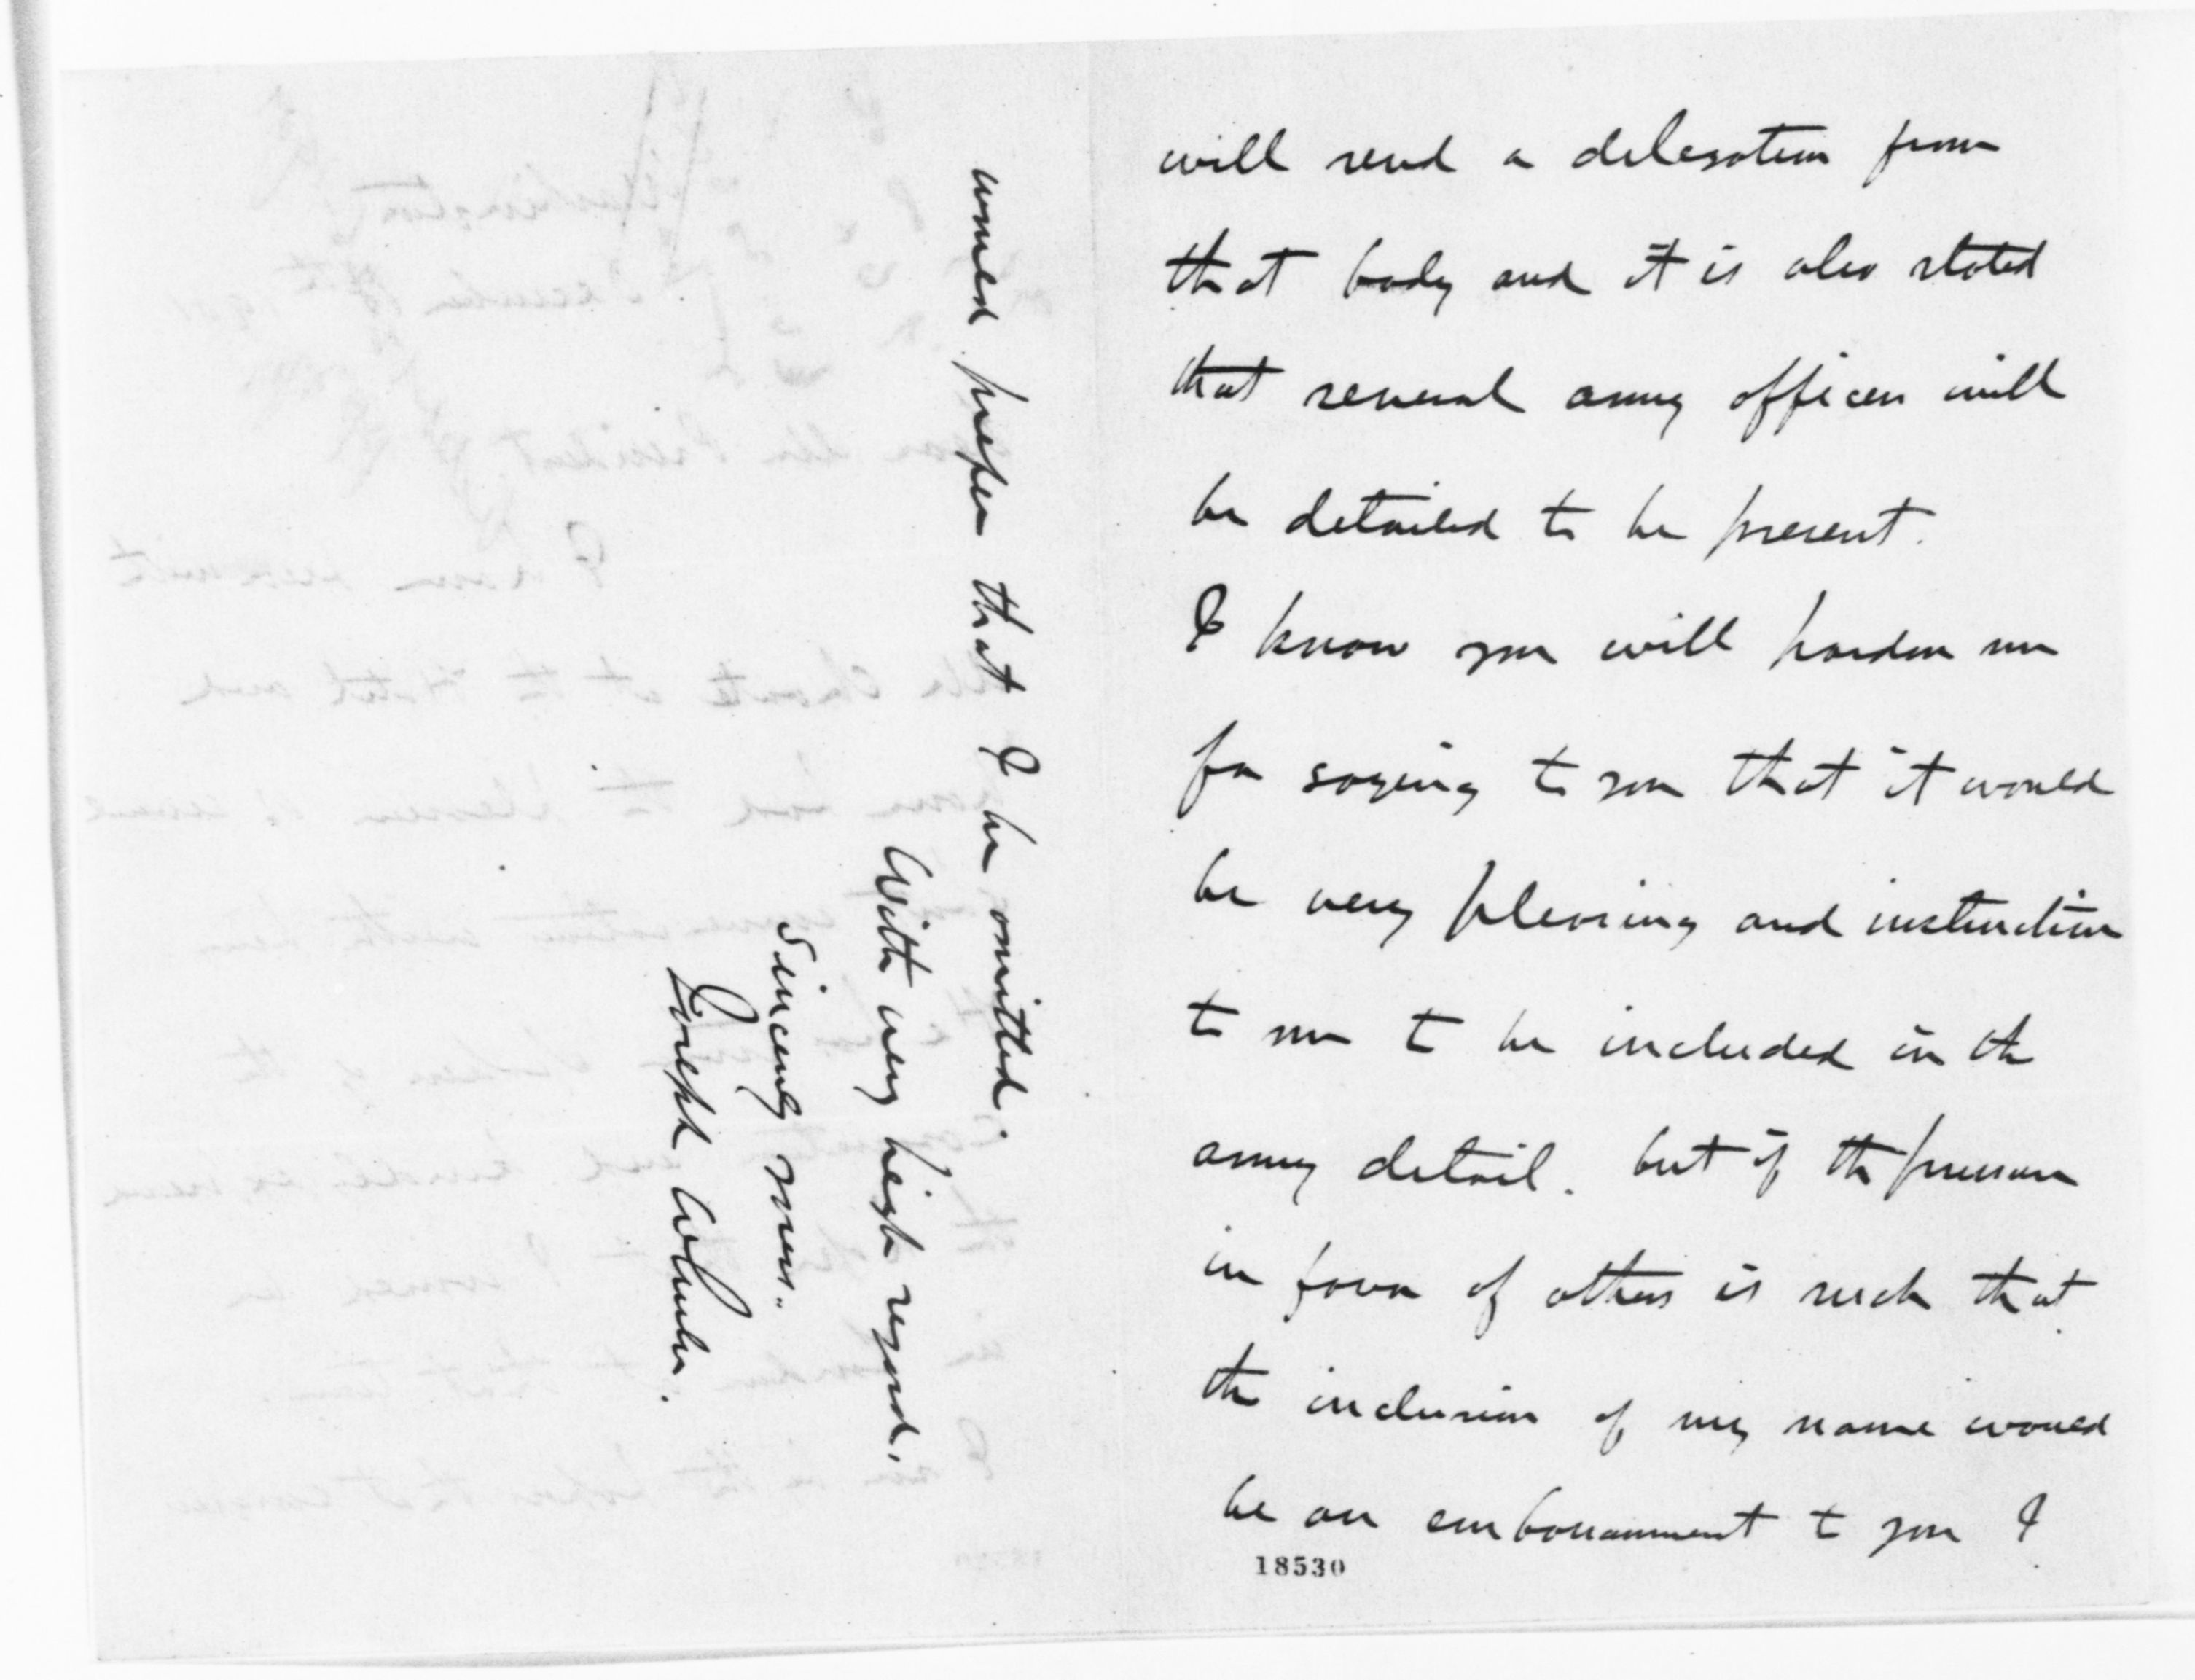 will send a delegation from
that body and it is also stated
that several army officers will
be detailed to be present.
I know you will pardon me
for saying to you that it would
be very pleasing and instructive
to me to be included in the
army detail. but if the pressure
in favor of others is such that
the inclusion of my name would
be an embarrassment to you I
18530
would prefer that I be omitted.
With very high regard.
Sincerely yours.
Joseph Wheeler.